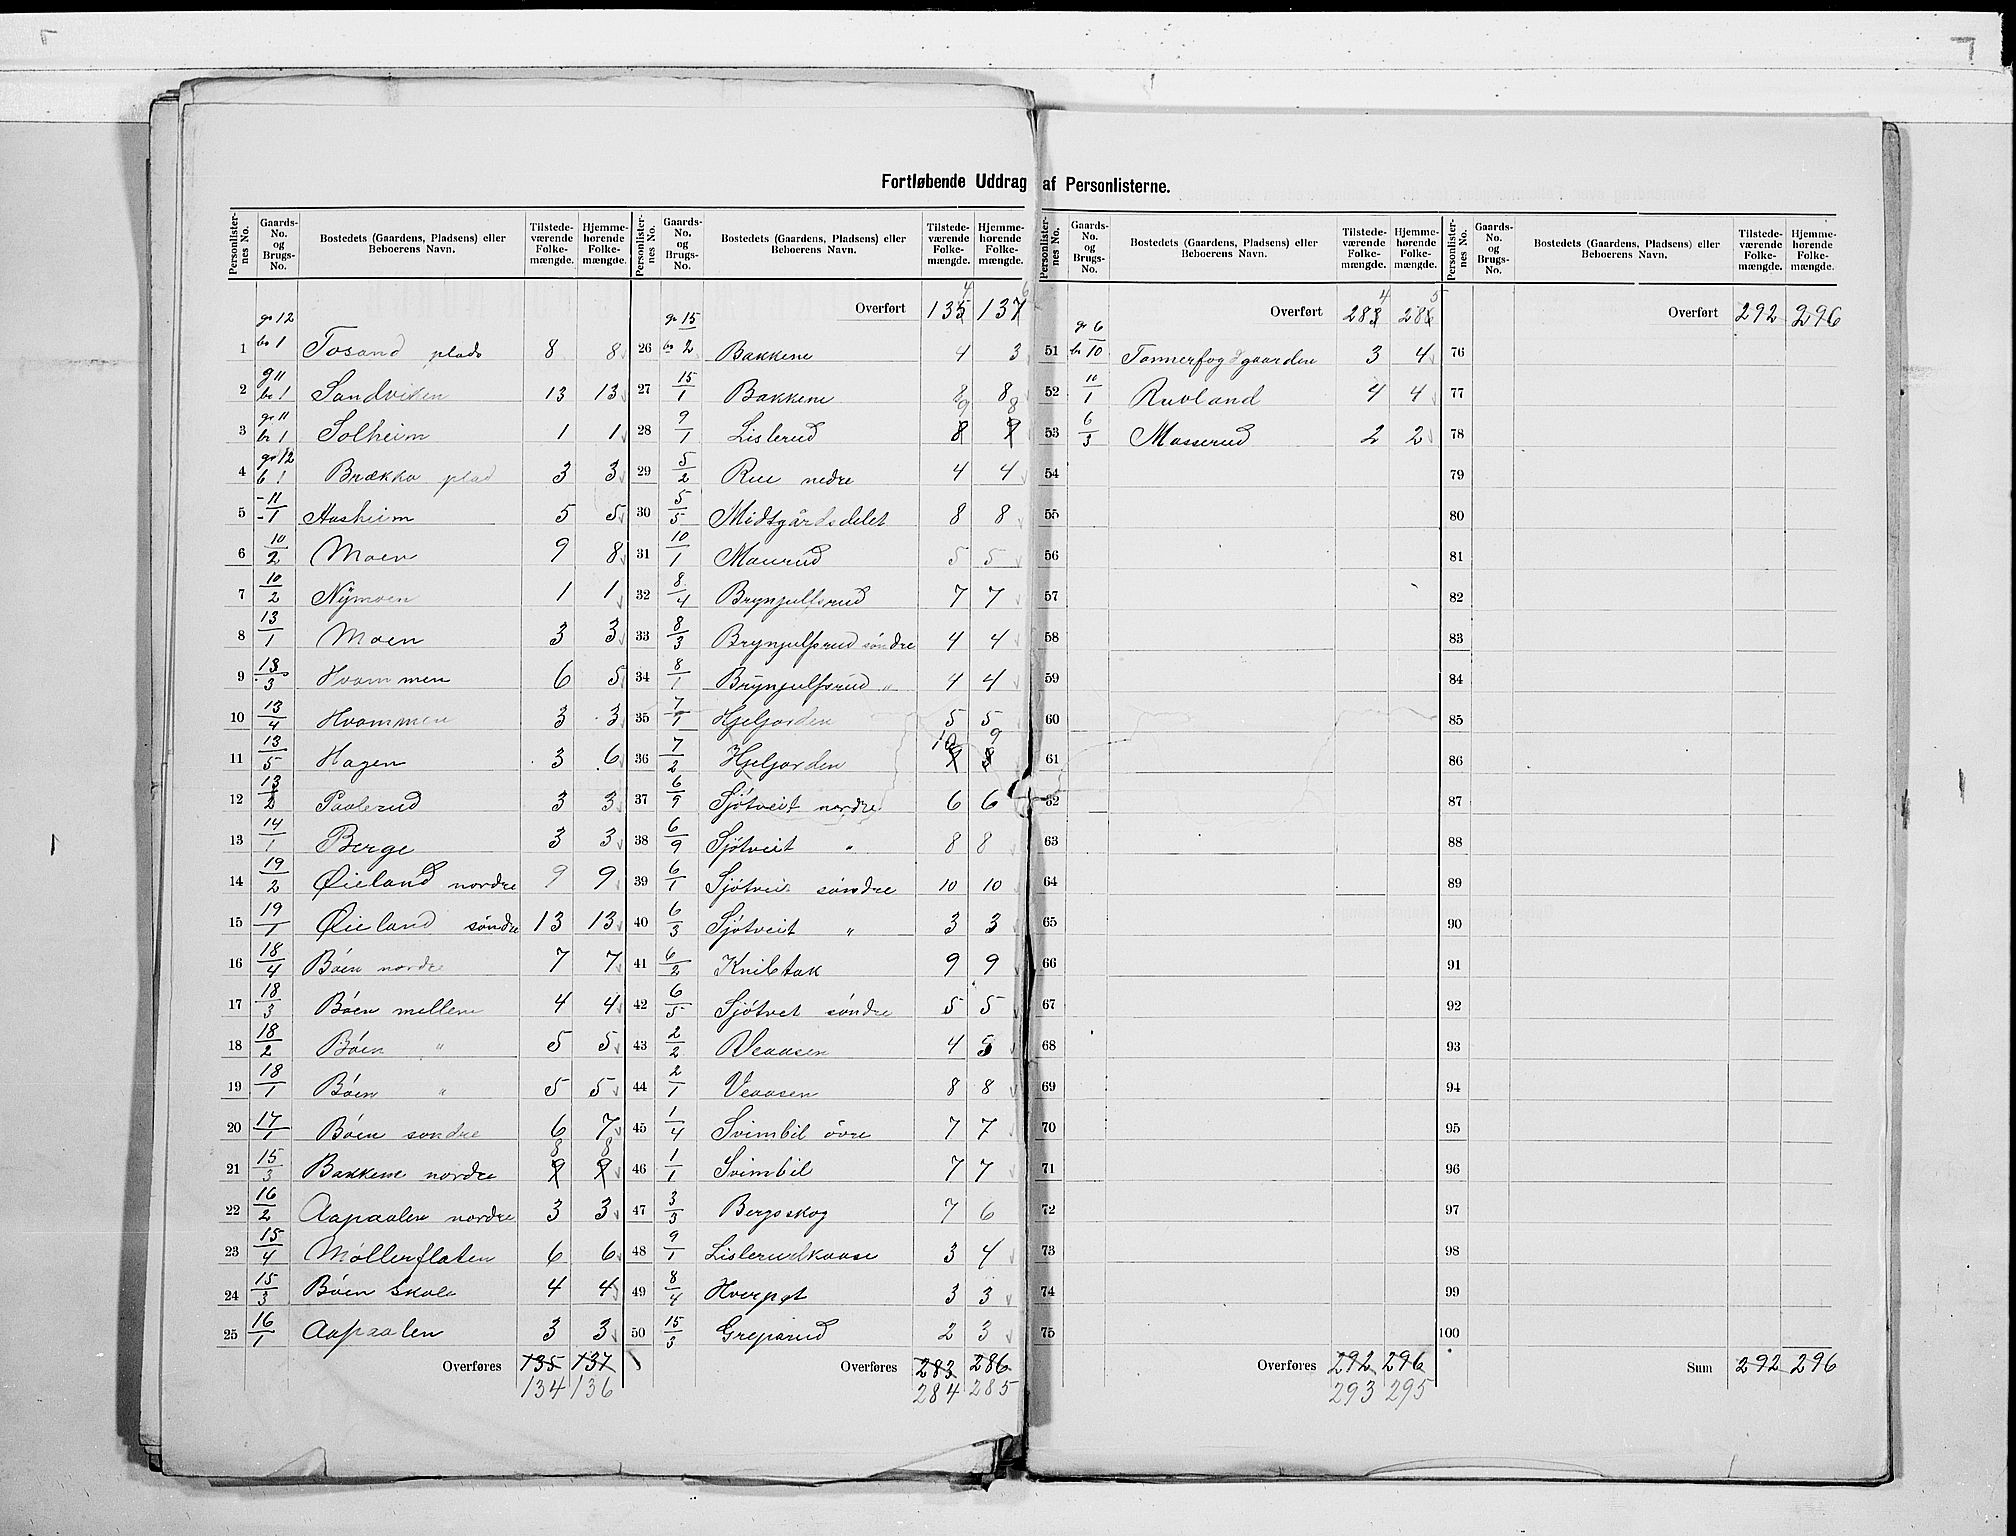 Fortløbende Uddrag af Personlisterne.
Personlisternes No. | Gaards-No. og Brugs-No. | Bostedets (Gaardens, Pladsens) eller Beboerens Navn. | Tilstedeværende Folkemængde. | Hjemmehørende Folkemængde.
1 gr 12 br 1 Tosand plads 8 8
2 g 11 br 1 Sandviken 13 13
3 gr 11 br 1 Solheim 1 1
4 gr 12 b 1 Brækka plad 3 3
5 11/1 Aasheim 5 5
6 10/2 Moen 9 8
7 10/2 Nymoen 1 1
8 13/1 Moen 3 3
9 13/3 Hvammen 6 5
10 13/4 Hvammen 3 3
11 13/5 Hagen 3 6
12 13/2 Paalerud 3 3
13 14/1 Berge 3 3
14 19/2 Øieland nordre 9 9
15 19/1 Øieland søndre 13 13
16 18/4 Böen nordre 7 7
17 18/3 Böen mellem 4 4
18 18/2 Böen " 5 5
19 18/1 Böen " 5 5
20 17/1 Böen søndre 6 7
21 15/3 Bakkene nordre 9 8 9 8
22 16/2 Aapaalen nordre 3 3
23 15/4 Møllerflaten 6 6
24 15/3 Böen Skole 4 4
25 16/1 Aapaalen 3 3
Overføres 135 137
134 136
Personlisternes No. | Gaards-No. og Brugs-No. | Bostedets (Gaardens, Pladsens) eller Beboerens Navn. | Tilstedeværende Folkemængde. | Hjemmehørende Folkemængde.
Overført 135 4 137 6
26 gr 15 br 2 Bakkene 4 3
27 15/1 Bakkene 8 8
28 9/1 Lislerud 8 9 9 8
29 5/2 Rue nedre 4 4
30 5/5 Midtgårdsdelet 8 8
31 10/1 Maurud 5 5
32 8/4 Brynjulfsrud 7 7
33 8/3 Brynjulfsrud søndre 4 4
34 8/1 Brynjulfsrud " 4 4
35 7/1 Hjeljorden 5 5
36 7/2 Hjeljorden 9 10 8 9
37 6/9 Sjötveit nordre 6 6
38 6/9 Sjötveit " 8 8
39 6/1 Sjötvei søndre 10 10
40 6/3 Sjötveit " 3 3
41 6/2 Kniltak 9 9
42 6/5 Sjötvet söndre 5 5
43 2/2 Veaasen 4 5
44 2/1 Veaasen 8 8
45 1/4 Svimbil övre 7 7
46 1/1 Svimbil 7 7
47 3/3 Bergsskog 7 6
48 9/1 Lislerudkaase 3 4
49 8/4 Hverpet 3 3
50 15/3 Greparud 2 3
Overføres 283 286
284 285
Personlisternes No. | Gaards-No. og Brugs-No. | Bostedets (Gaardens, Pladsens) eller Beboerens Navn. | Tilstedeværende Folkemængde. | Hjemmehørende Folkemængde.
Overført 283 4 286 5
51 gr 6 br 10 Tømmerfogdgaarden 3 4
52 10/1 Ruvland 4 4
53 6/3 Masserud 2 2
54
55
56
57
58
59
60
61
62
63
64
65
66
67
68
69
70
71
72
73
74
75
Overføres 292 296
293 295
Personlisternes No. | Gaards-No. og Brugs-No. | Bostedets (Gaardens, Pladsens) eller Beboerens Navn. | Tilstedeværende Folkemængde. | Hjemmehørende Folkemængde.
Overført 292 296
76
77
78
79
80
81
82
83
84
85
86
87
88
89
90
91
92
93
94
95
96
97
98
99
100
Sum 292 296